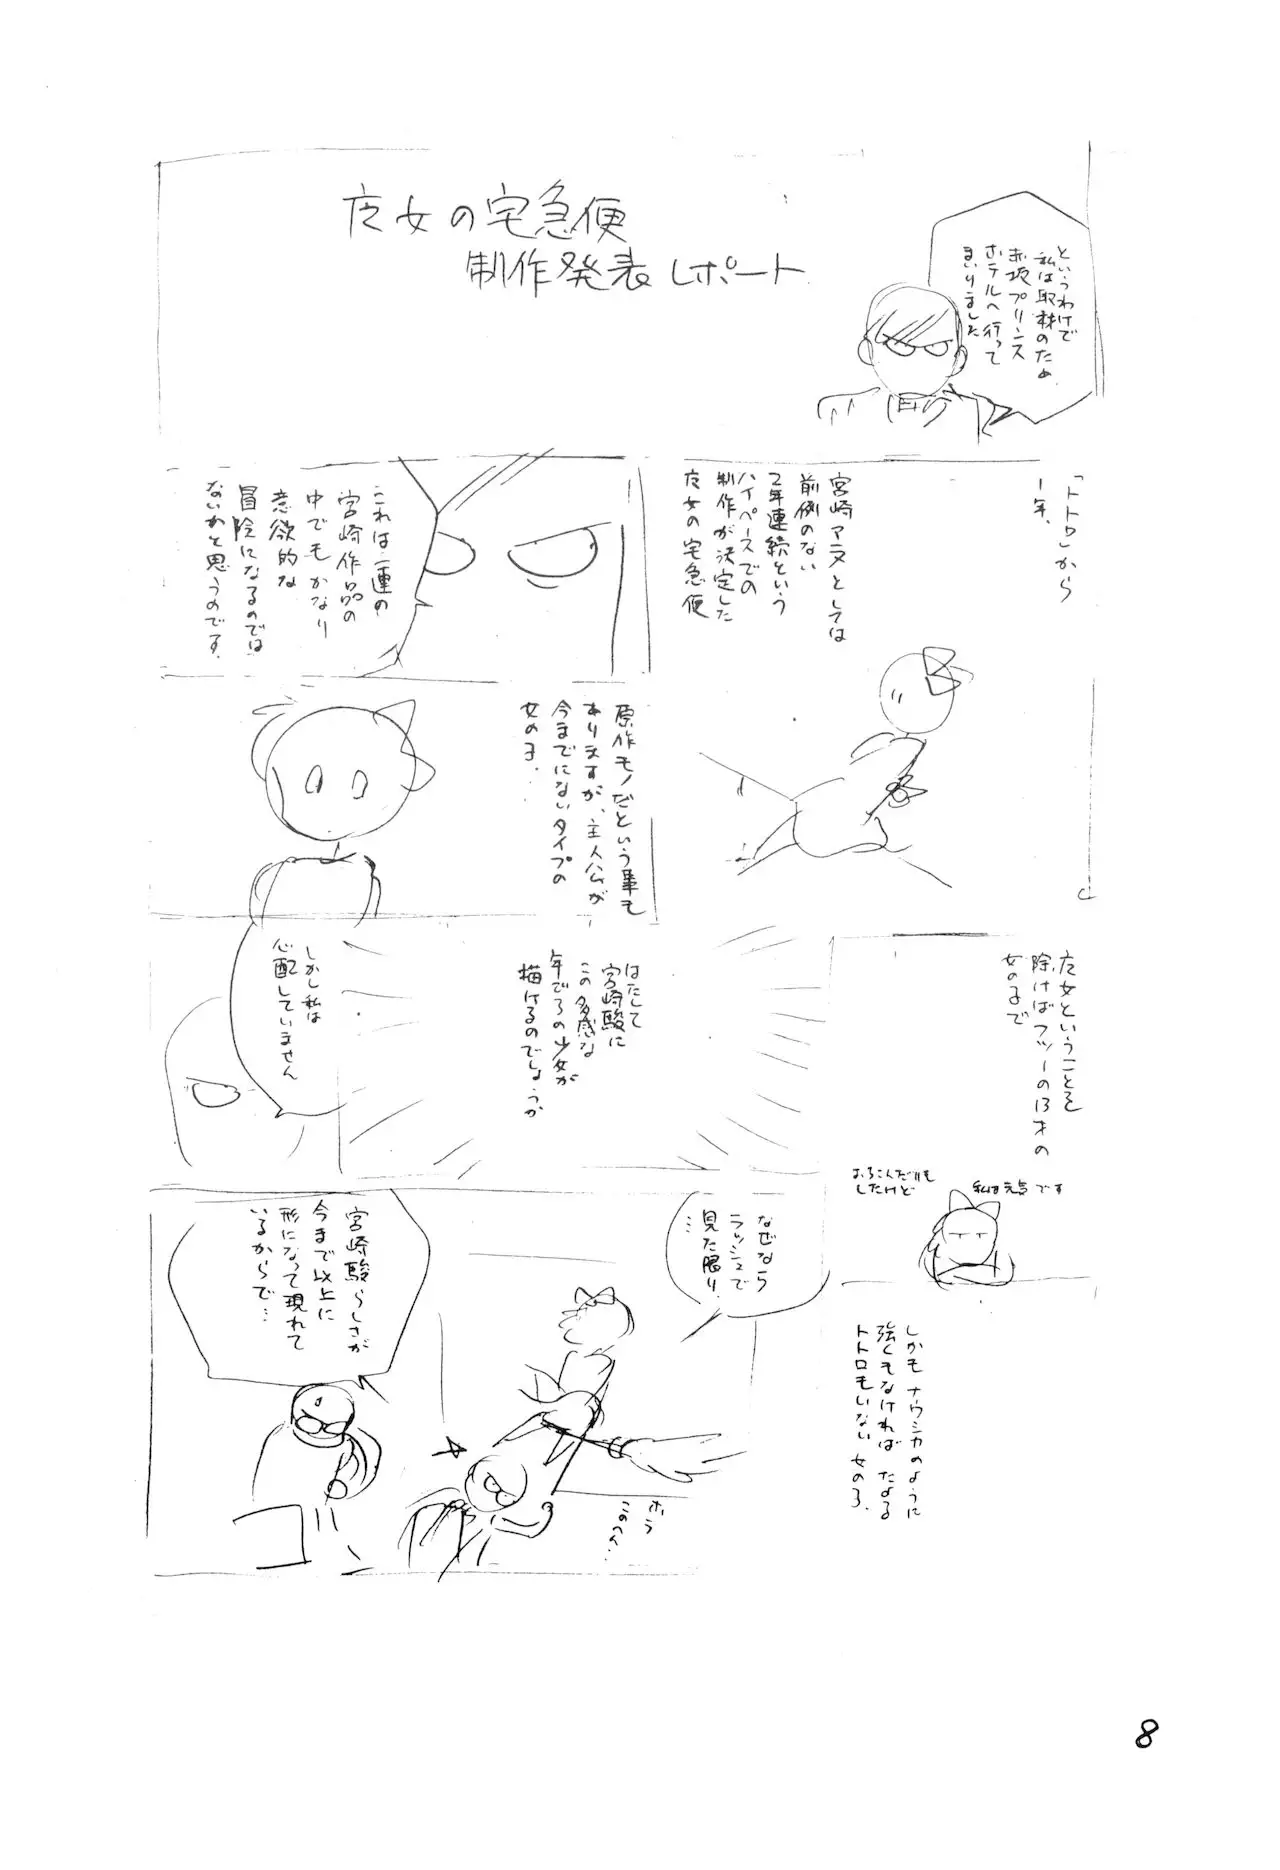 魔女の宅急便
制作発表レポート
というわけで
私は取材のため
赤坂プリンス
ホテルへ行って
まいりました
「トトロ」から
1年、
宮崎アニメとしては
前例のない
2年連続という
ハイペースでの
制作が決定した
魔女の宅急便
これは一連の
宮崎作品の
中でもかなり
意欲的な
冒険になるのでは
ないかと思うのです。
原作モノだという事も
ありますが、主人公が
今までにないタイプの
女の子。
魔女ということを
除けばフツーの13才の
女の子で
おちこんだりも
したけど
私は元気です
しかもナウシカのように
強くもなければたよる
トトロもいない女の子。
はたして
宮崎駿に
この多感な
年ごろの少女が
描けるのでしょうか
しかし私は
心配していません
なぜなら
ラッシュで
見た限り、
…
ホラ
このへん…
宮崎駿らしさが
今まで以上に
形になって現れて
いるからで…
8